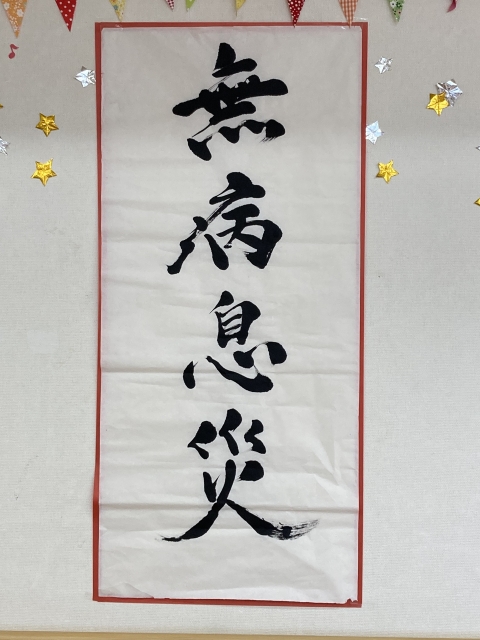 無病息災